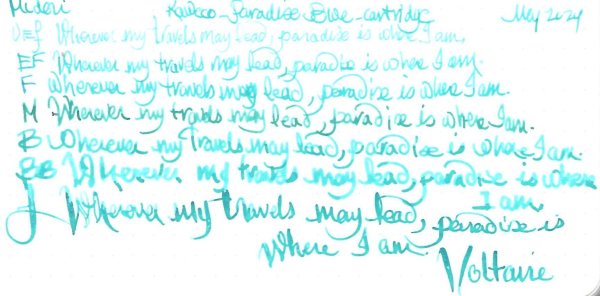 Midori Kaweco - Paradise Blue - cartridge May 2024
Wherever my travels may lead, paradise is where I am.
EF Wherever my travels may lead, paradise is where I am.
F Wherever my travels may lead, paradise is where I am.
M Wherever my travels may lead, paradise is where I am.
B Wherever my travels may lead, paradise is where I am.
BB Wherever my travels may lead, paradise is where
I am.
J Wherever my travels may lead, paradise is
where I am.
Voltaire